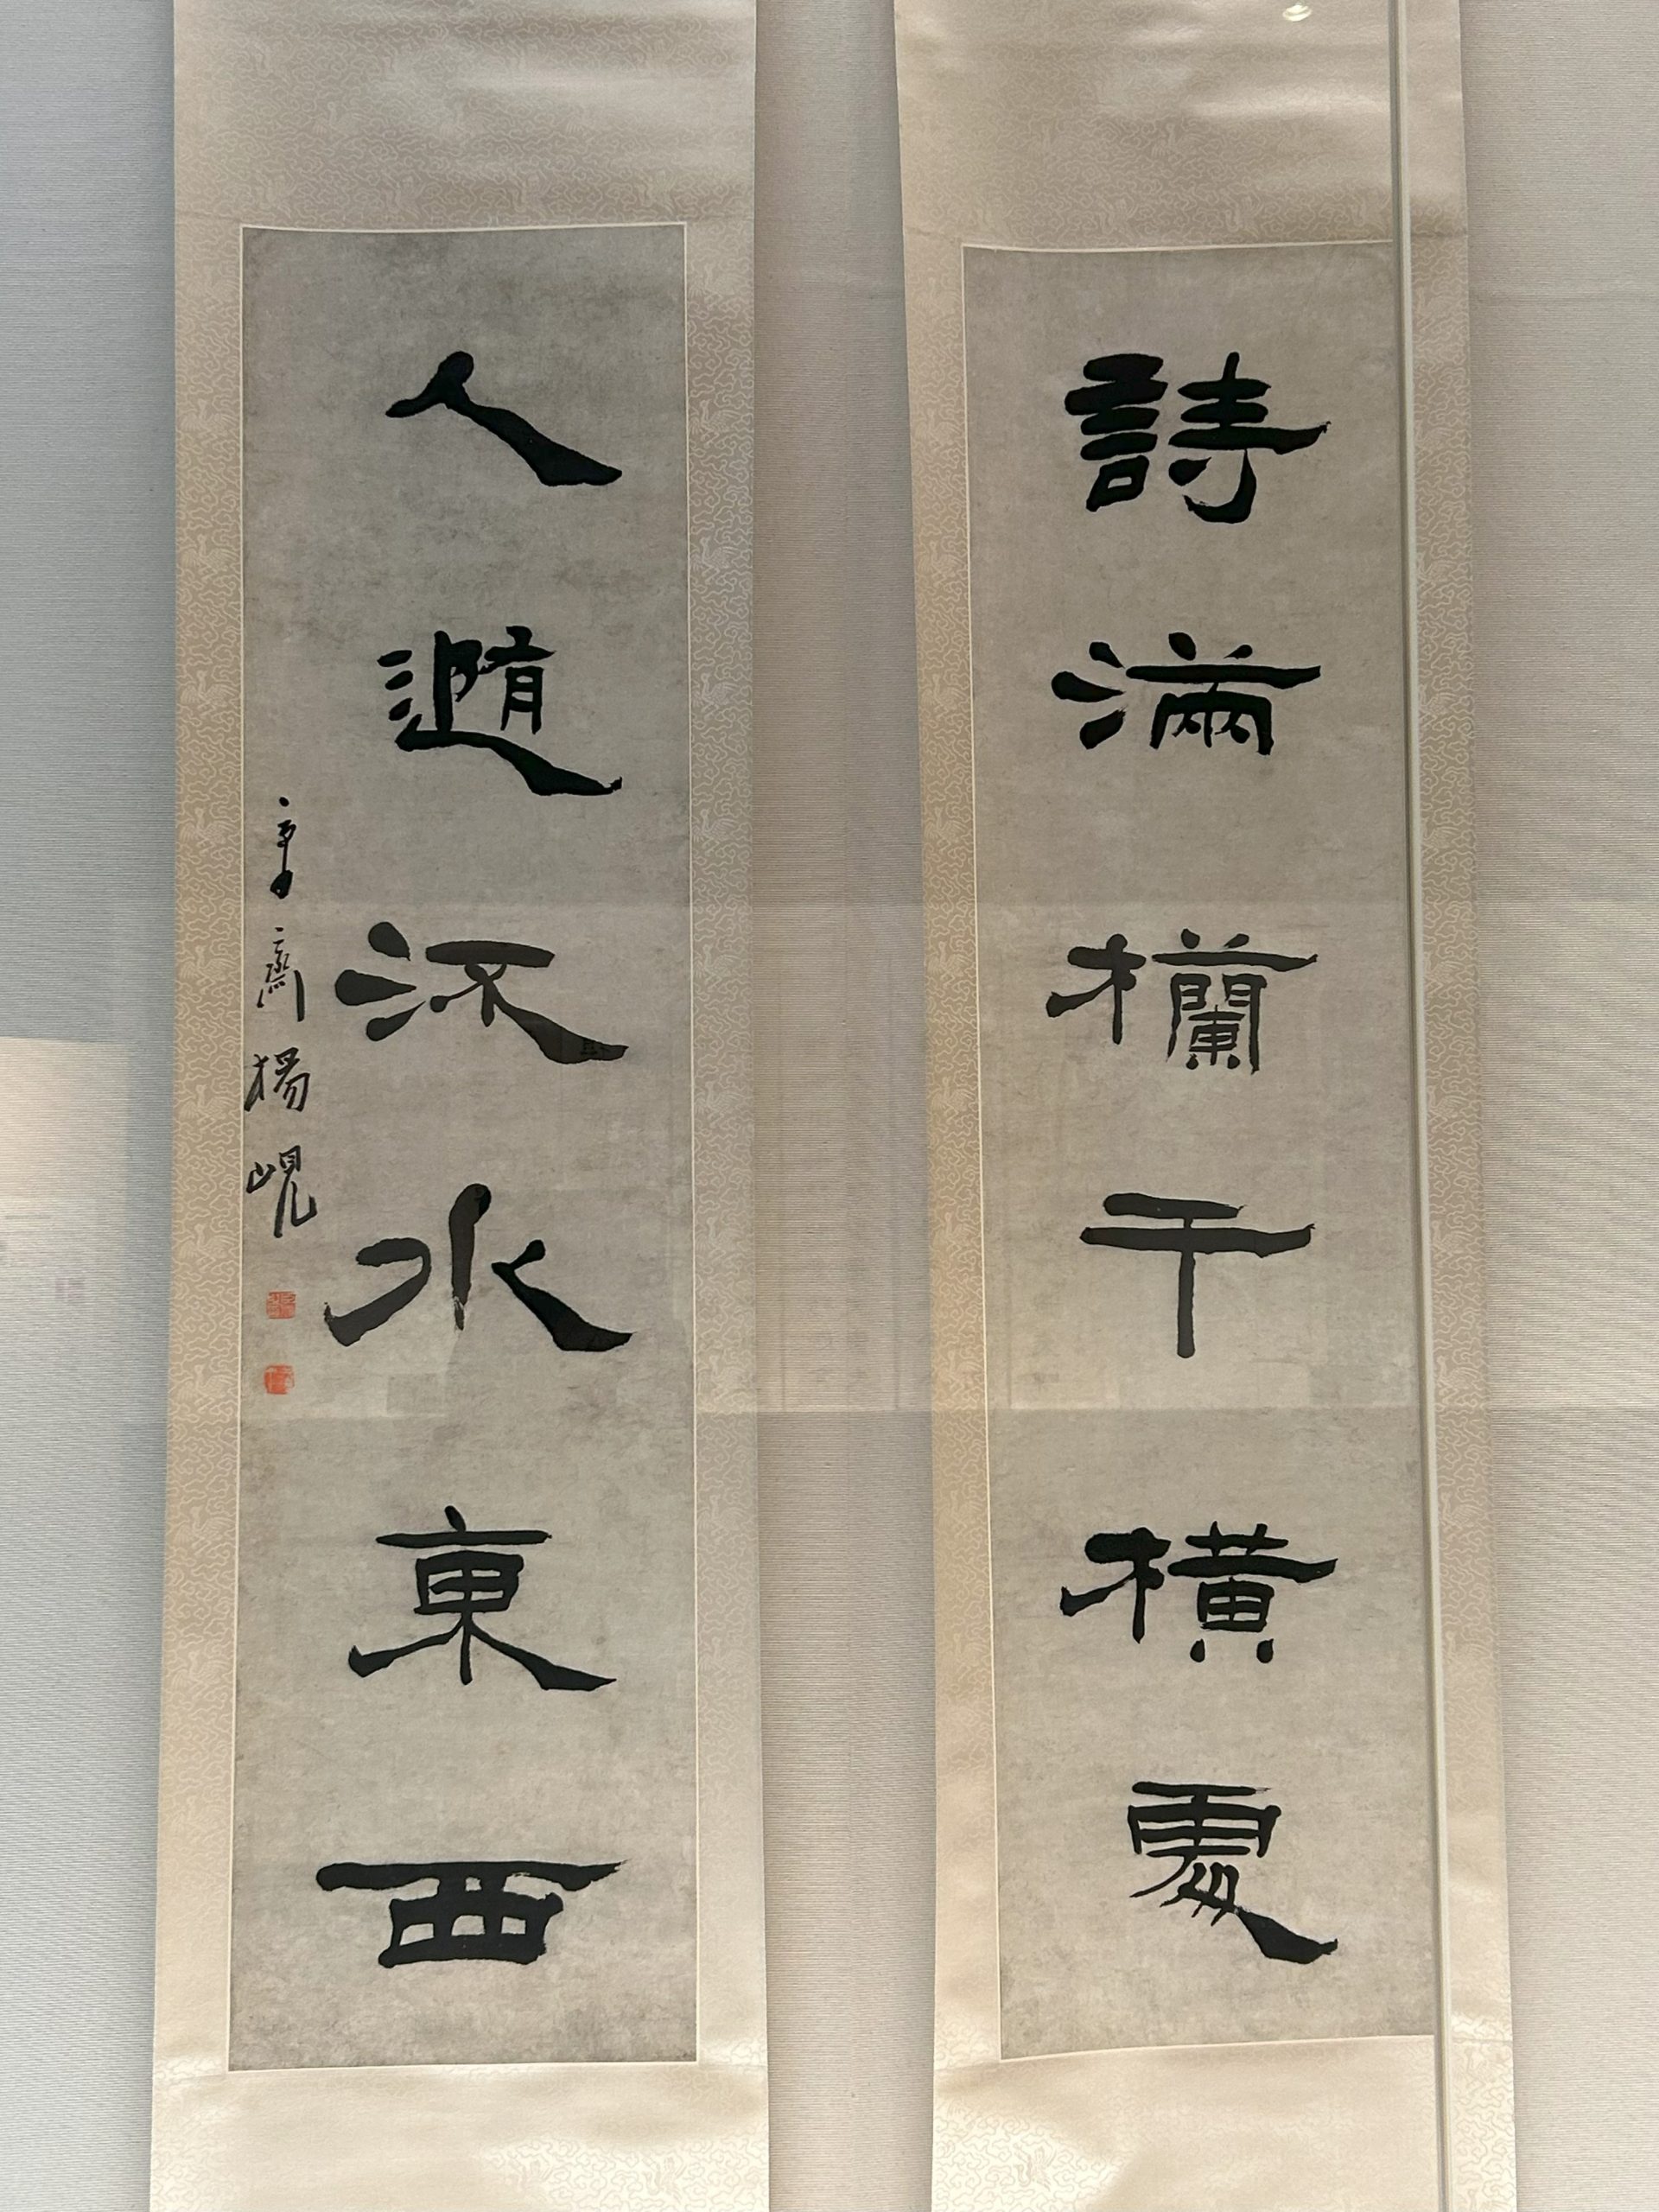 詩滿欄干橫處
人隨流水東西
庸齋楊峴